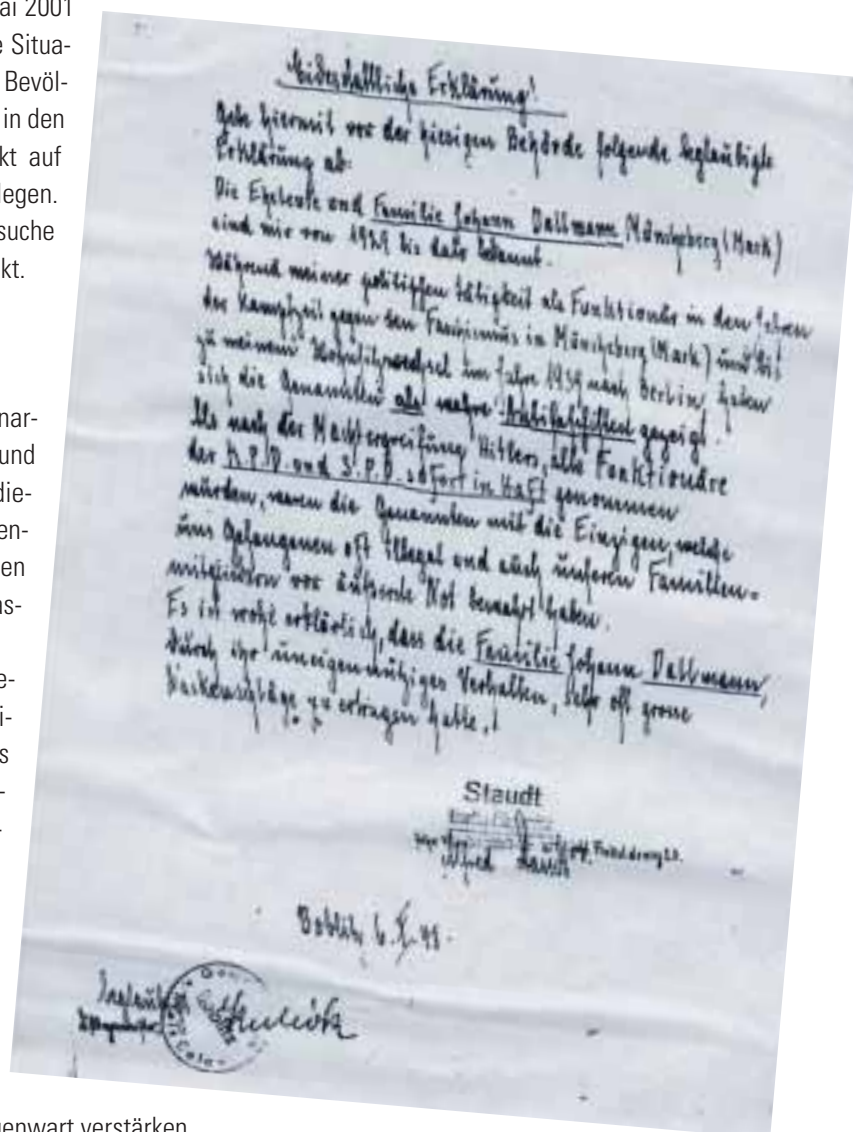 ai 2001
e Situa-
Bevöl-
in den
kt auf
legen.
suche
kt.
nar-
und
die-
en-
en
s-
e-
i-
s
-
Eidesstattliche Erklärung!
Gebe hiermit vor der hiesigen Behörde folgende beglaubigte
Erklärung ab:
Die Eheleute und Familie Johann Dallmann Müncheberg (Mark)
sind mir von 1929 bis dato bekannt.
Während meiner politischen tätigkeit als Funktionär in den Jahren
der Kampfzeit gegen den Faschismus in Müncheberg (Mark) und bis
zu meinem Wohnsitzwechsel im Jahre 1939 nach Berlin, haben
sich die Genannten als wahre Antifaschisten gezeigt.
Als nach der Machtergreifung Hitlers, alle Funktionäre
der K.P.D. und S.P.D. sofort in Haft genommen
wurden, waren die Genannten mit die Einzigen, welche
uns Gefangenen oft illegal und auch unseren Familien-
mitgliedern vor äußerste Not bewahrt haben.
Es ist wohl erklärlich, dass die Familie Johann Dallmann,
durch ihr uneigennütziges Verhalten, sehr oft grosse
zu ertragen hatte.!
Staudt
Alfred
6. 48.
genwart verstärken